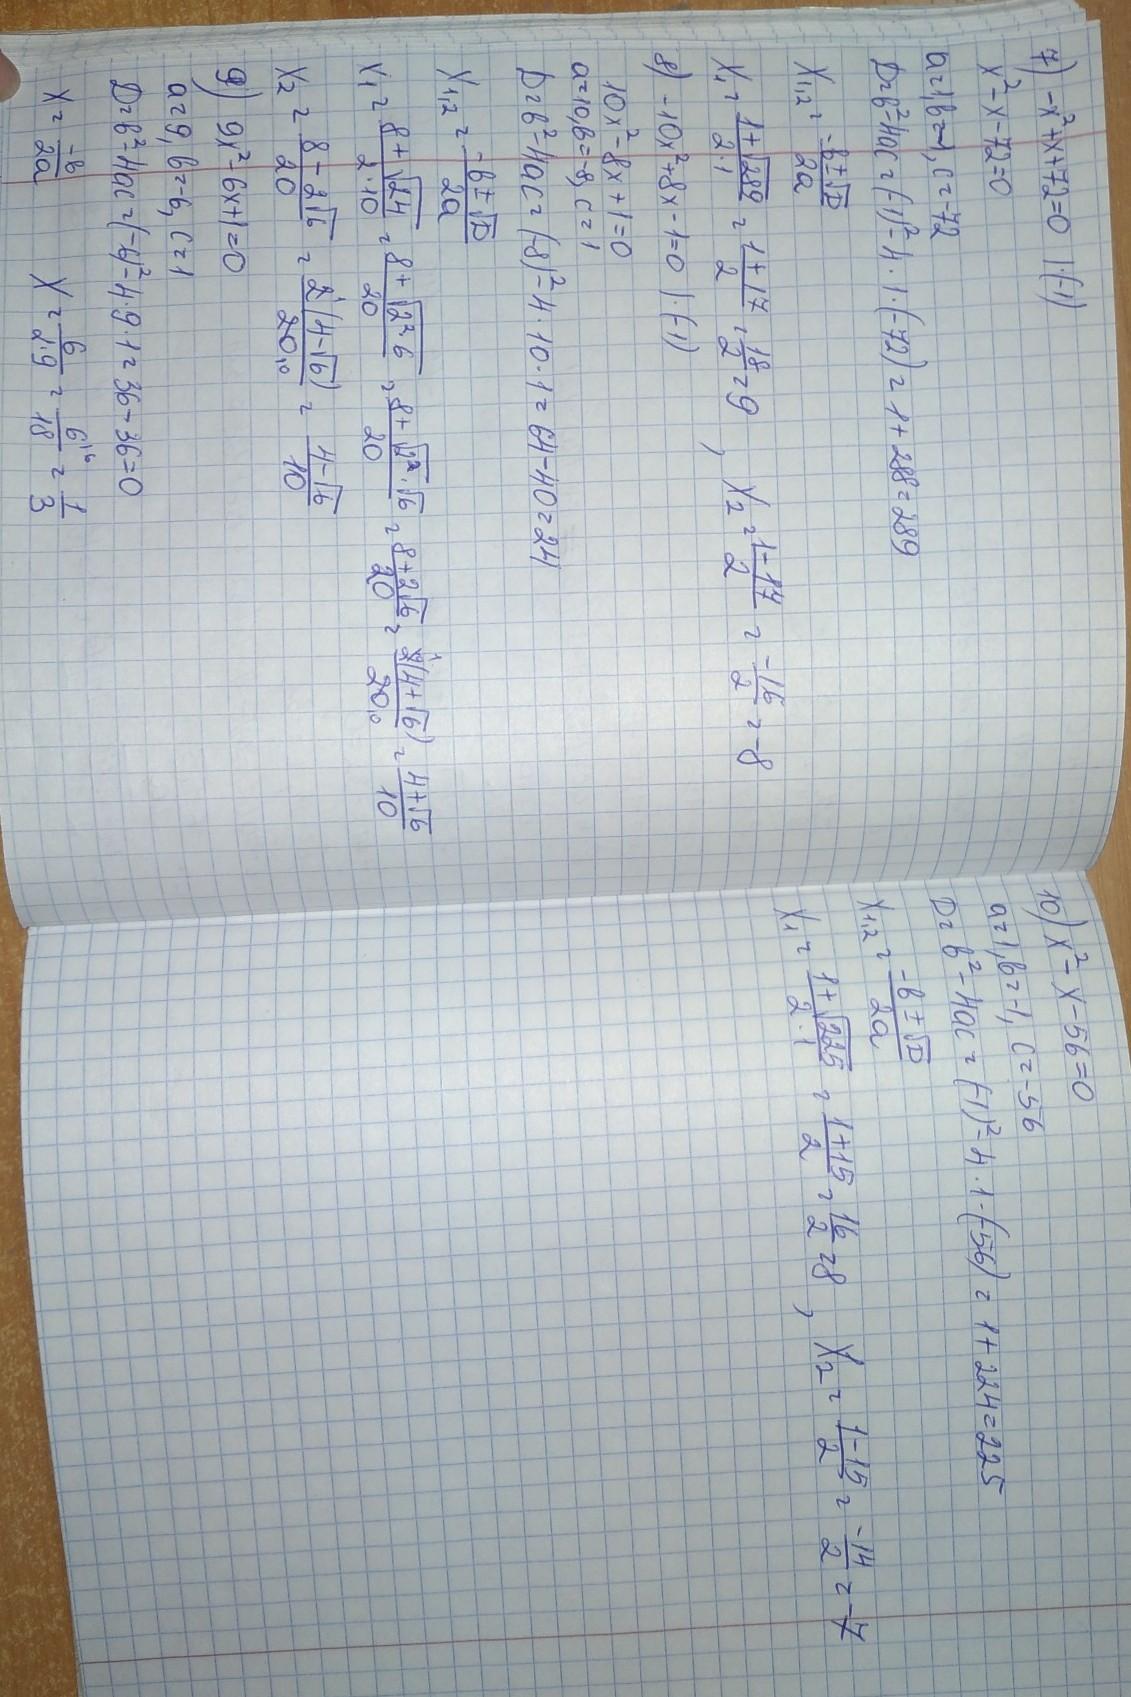 7) -x²+x+72=0 |·(-1)
x²-x-72=0
a=1, b=-1, c=-72
D=b²-4ac=(-1)²-4·1·(-72)=1+288=289
X₁,₂=(-b±√D)/2a
X₁=(1+√289)/(2·1)=(1+17)/2=18/2=9, X₂=(1-17)/2=-16/2=-8
8) -10x²+8x-1=0 |·(-1)
10x²-8x+1=0
a=10, b=-8, c=1
D=b²-4ac=(-8)²-4·10·1=64-40=24
X₁,₂=(-b±√D)/2a
X₁=(8+√24)/(2·10)=(8+√(2²·6))/20=(8+√2²·√6)/20=(8+2√6)/20=2(4+√6)/20=(4+√6)/10
X₂=(8-2√6)/20=2(4-√6)/20=(4-√6)/10
9) 9x²-6x+1=0
a=9, b=-6, c=1
D=b²-4ac=(-6)²-4·9·1=36-36=0
X=-b/2a X=6/(2·9)=6/18=1/3
10) x²-x-56=0
a=1, b=-1, c=-56
D=b²-4ac=(-1)²-4·1·(-56)=1+224=225
X₁,₂=(-b±√D)/2a
X₁=(1+√225)/(2·1)=(1+15)/2=16/2=8, X₂=(1-15)/2=-14/2=-7